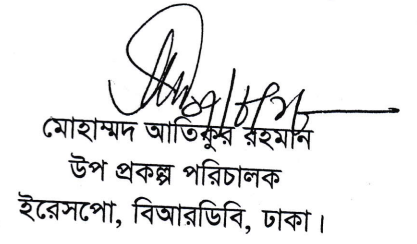 মোহাম্মদ আতিকুর রহমান
উপ প্রকল্প পরিচালক
ইরেসপো, বিআরডিবি, ঢাকা।